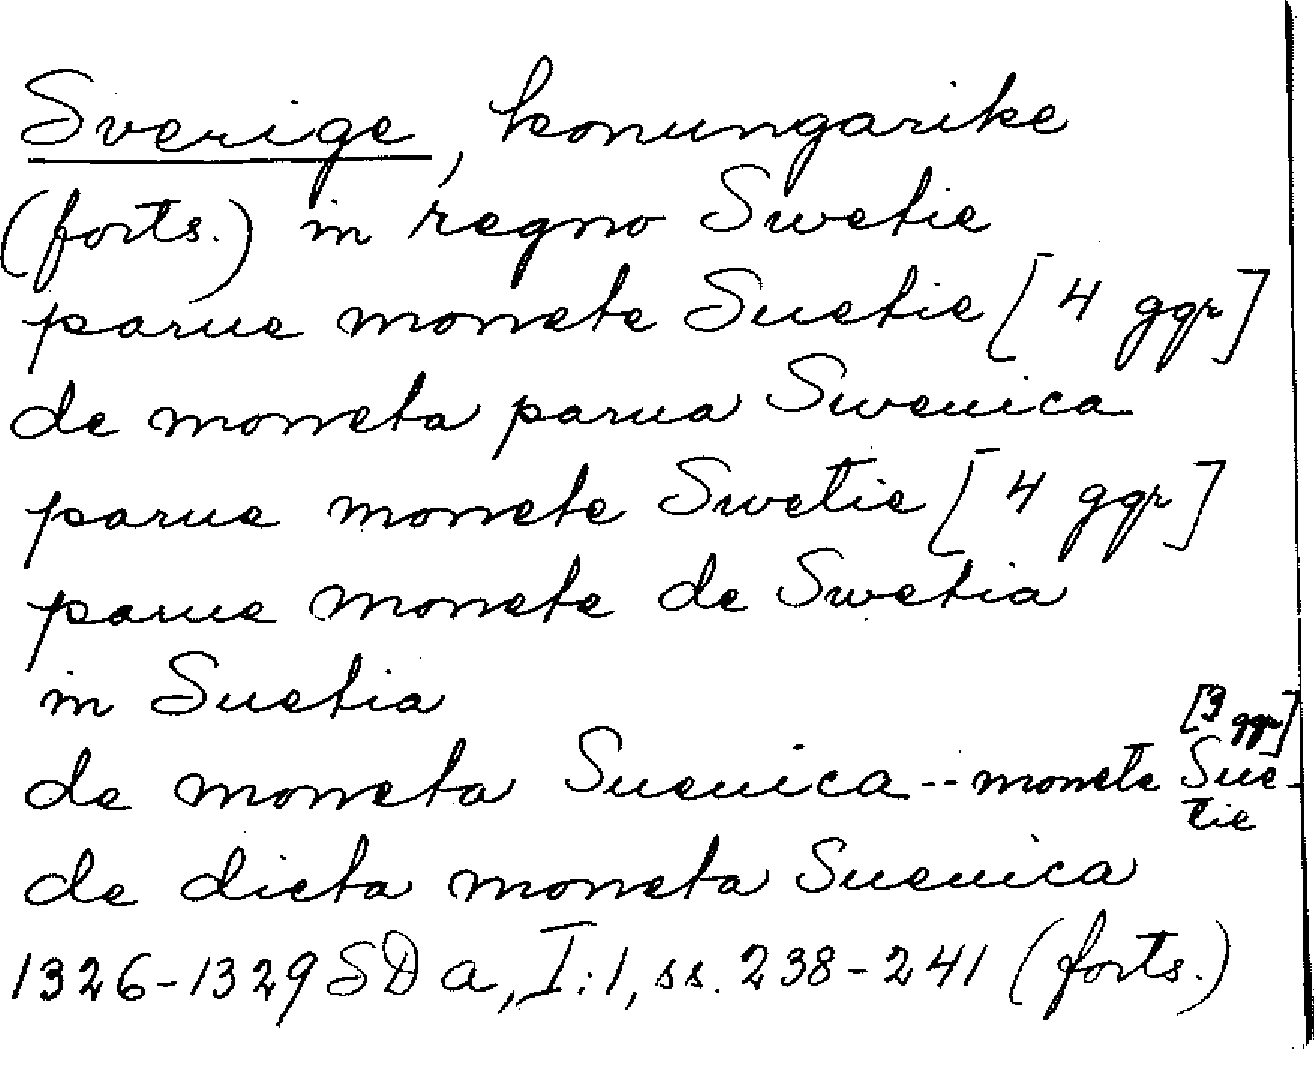 Sverige, konungarike
(forts.) in regno Swetie
parue monete Suetie [4 ggr]
de moneta parua Swenica
parue monete Swetie [4 ggr]
parue monete de Swetia
in Suetia
de moneta Suenica -- monete Sue- [3 ggr]
tie
de dicta moneta Suenica
1326-1329 SD a, I:1, ss. 238-241 (forts.)